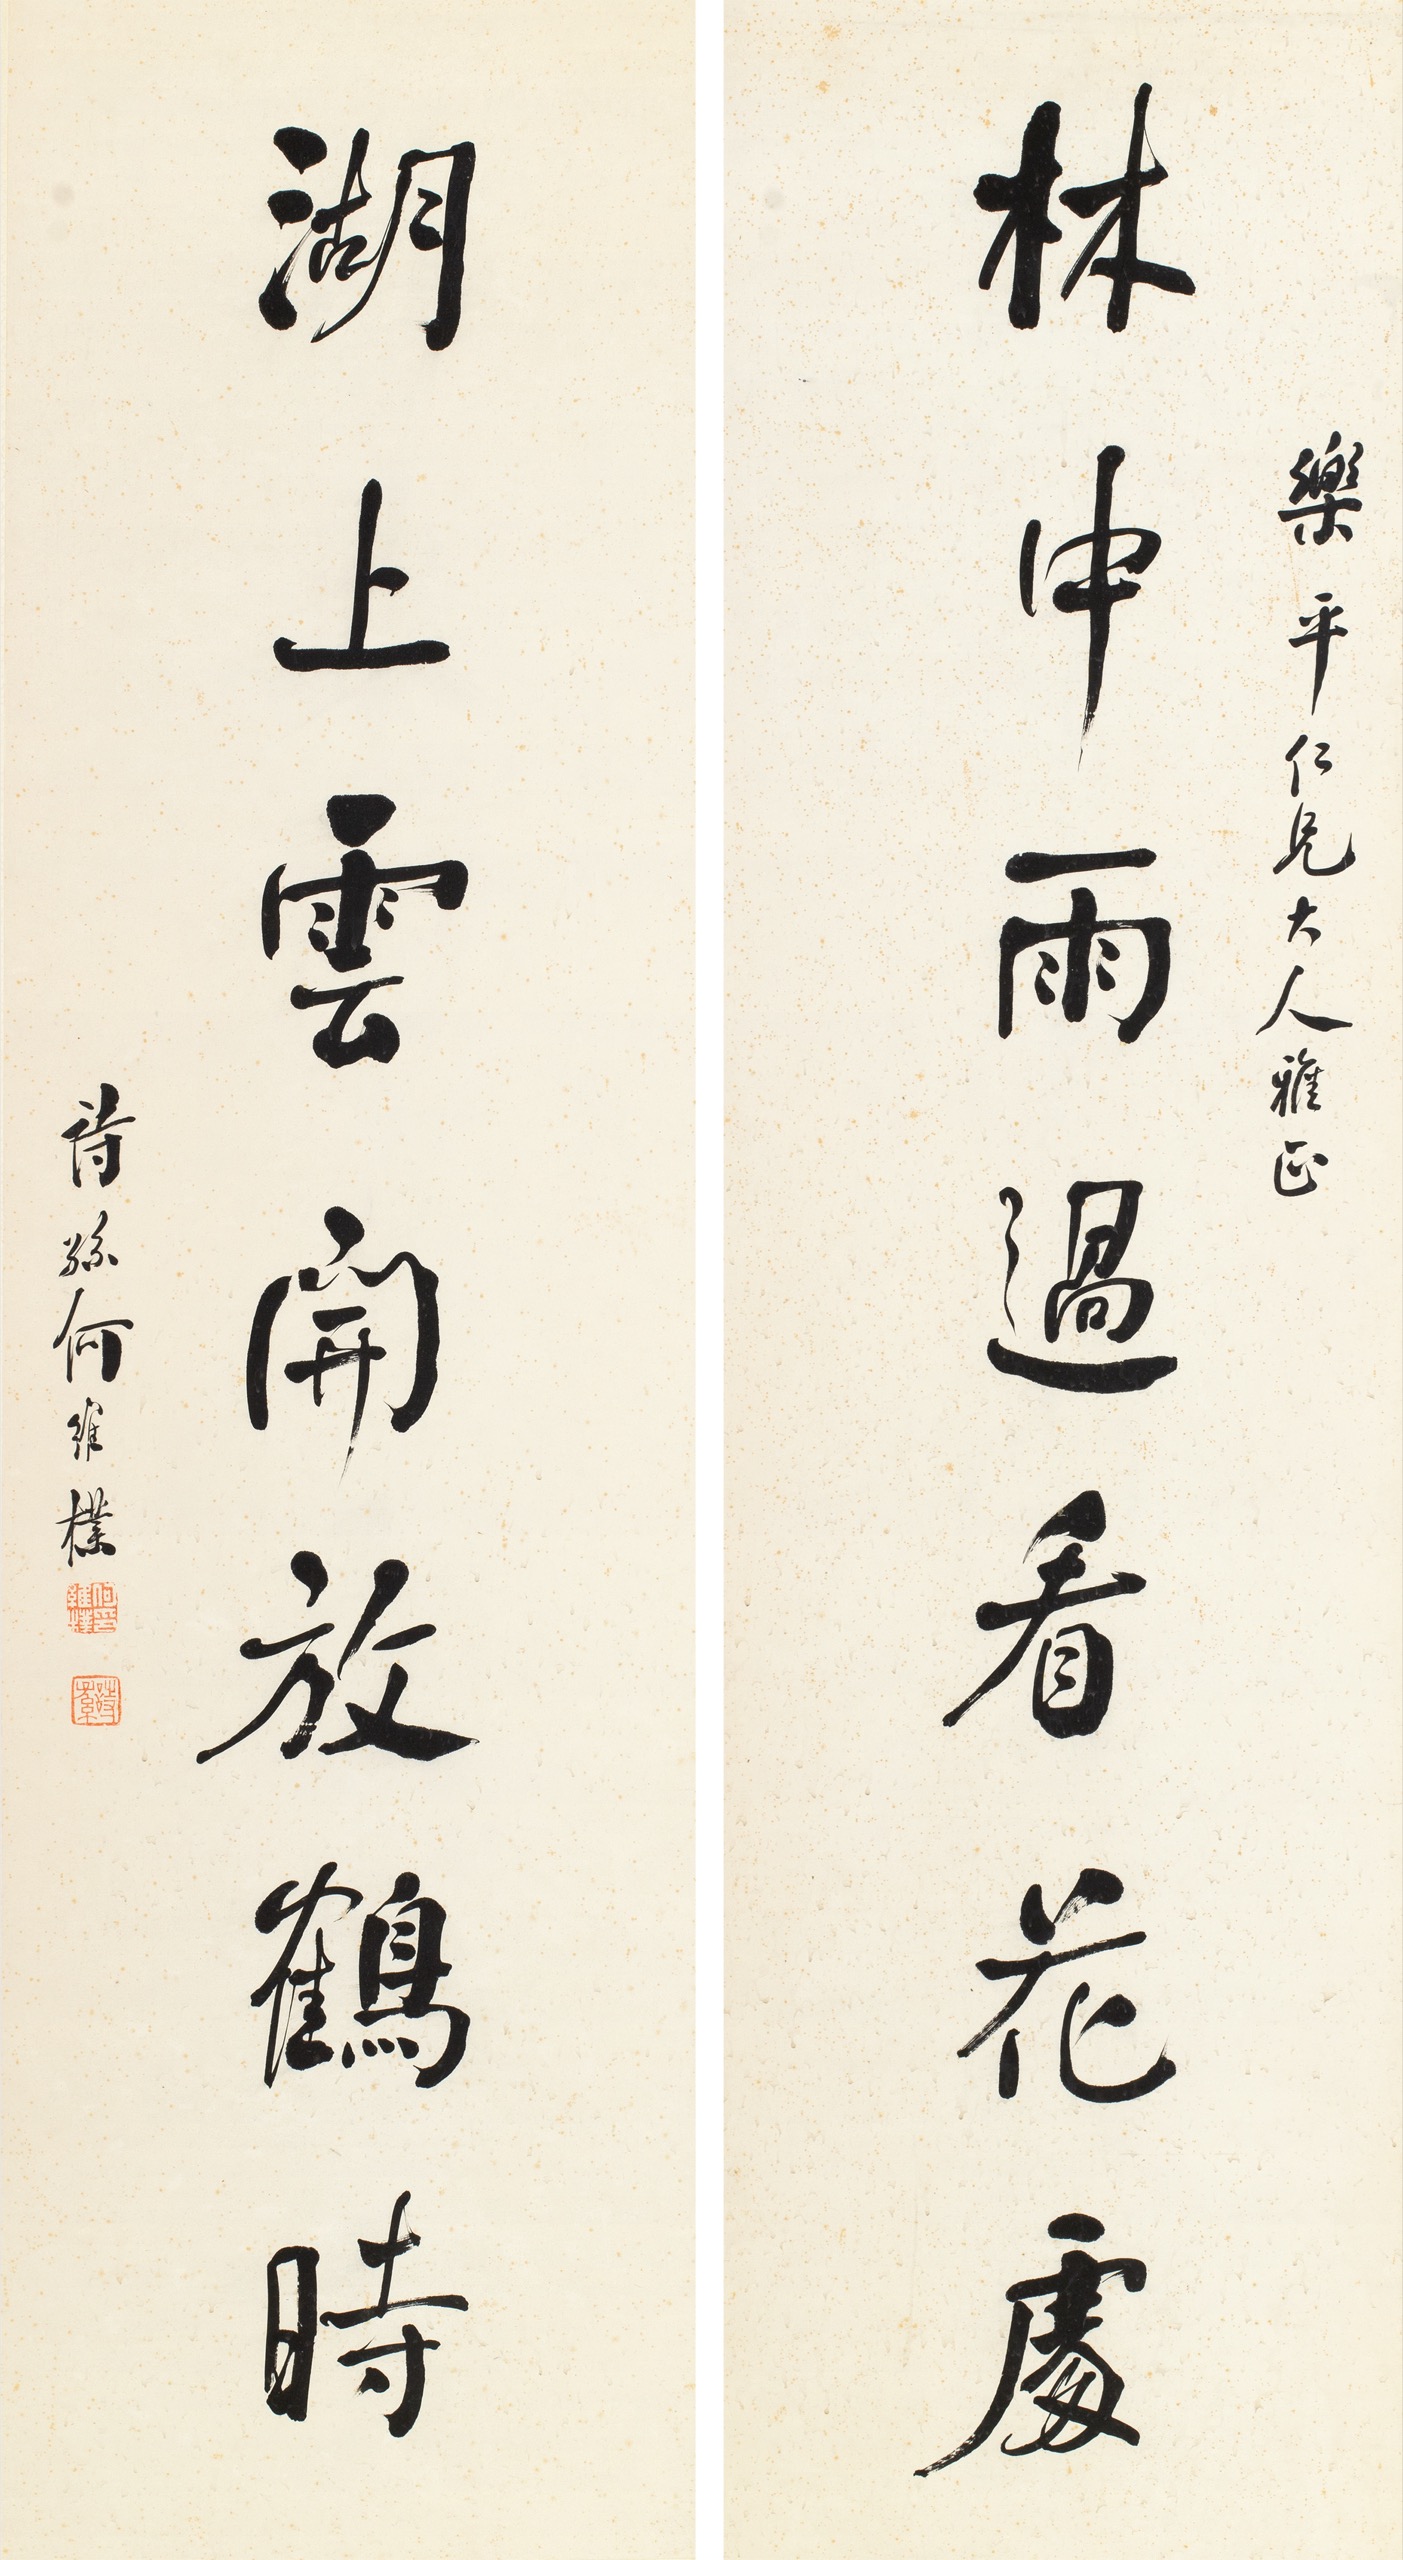 樂平仁兄大人雅正
林中雨過看花處
湖上雲開放鶴時
詩孫何維樸
何維樸印
詩孫